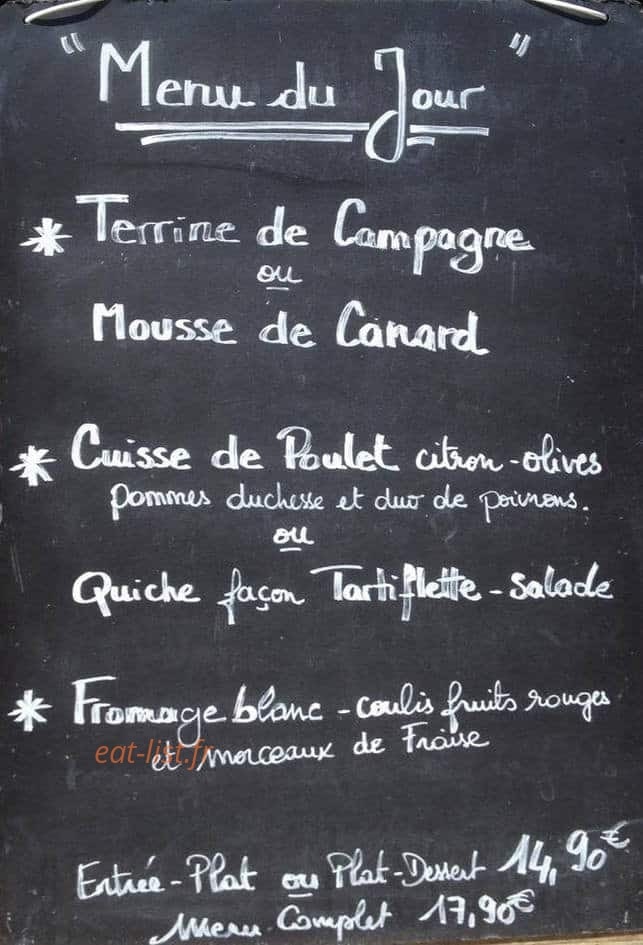 " Menu du Jour "
* Terrine de Campagne
ou
Mousse de Canard
* Cuisse de Poulet citron-olives
pommes duchesse et duo de poivrons.
ou
Quiche façon Tartiflette - salade
* Fromage blanc - coulis fruits rouges
et morceaux de Fraise
eat-list.fr
Entrée - Plat ou Plat-Dessert 14,90€
Menu Complet 17,90€